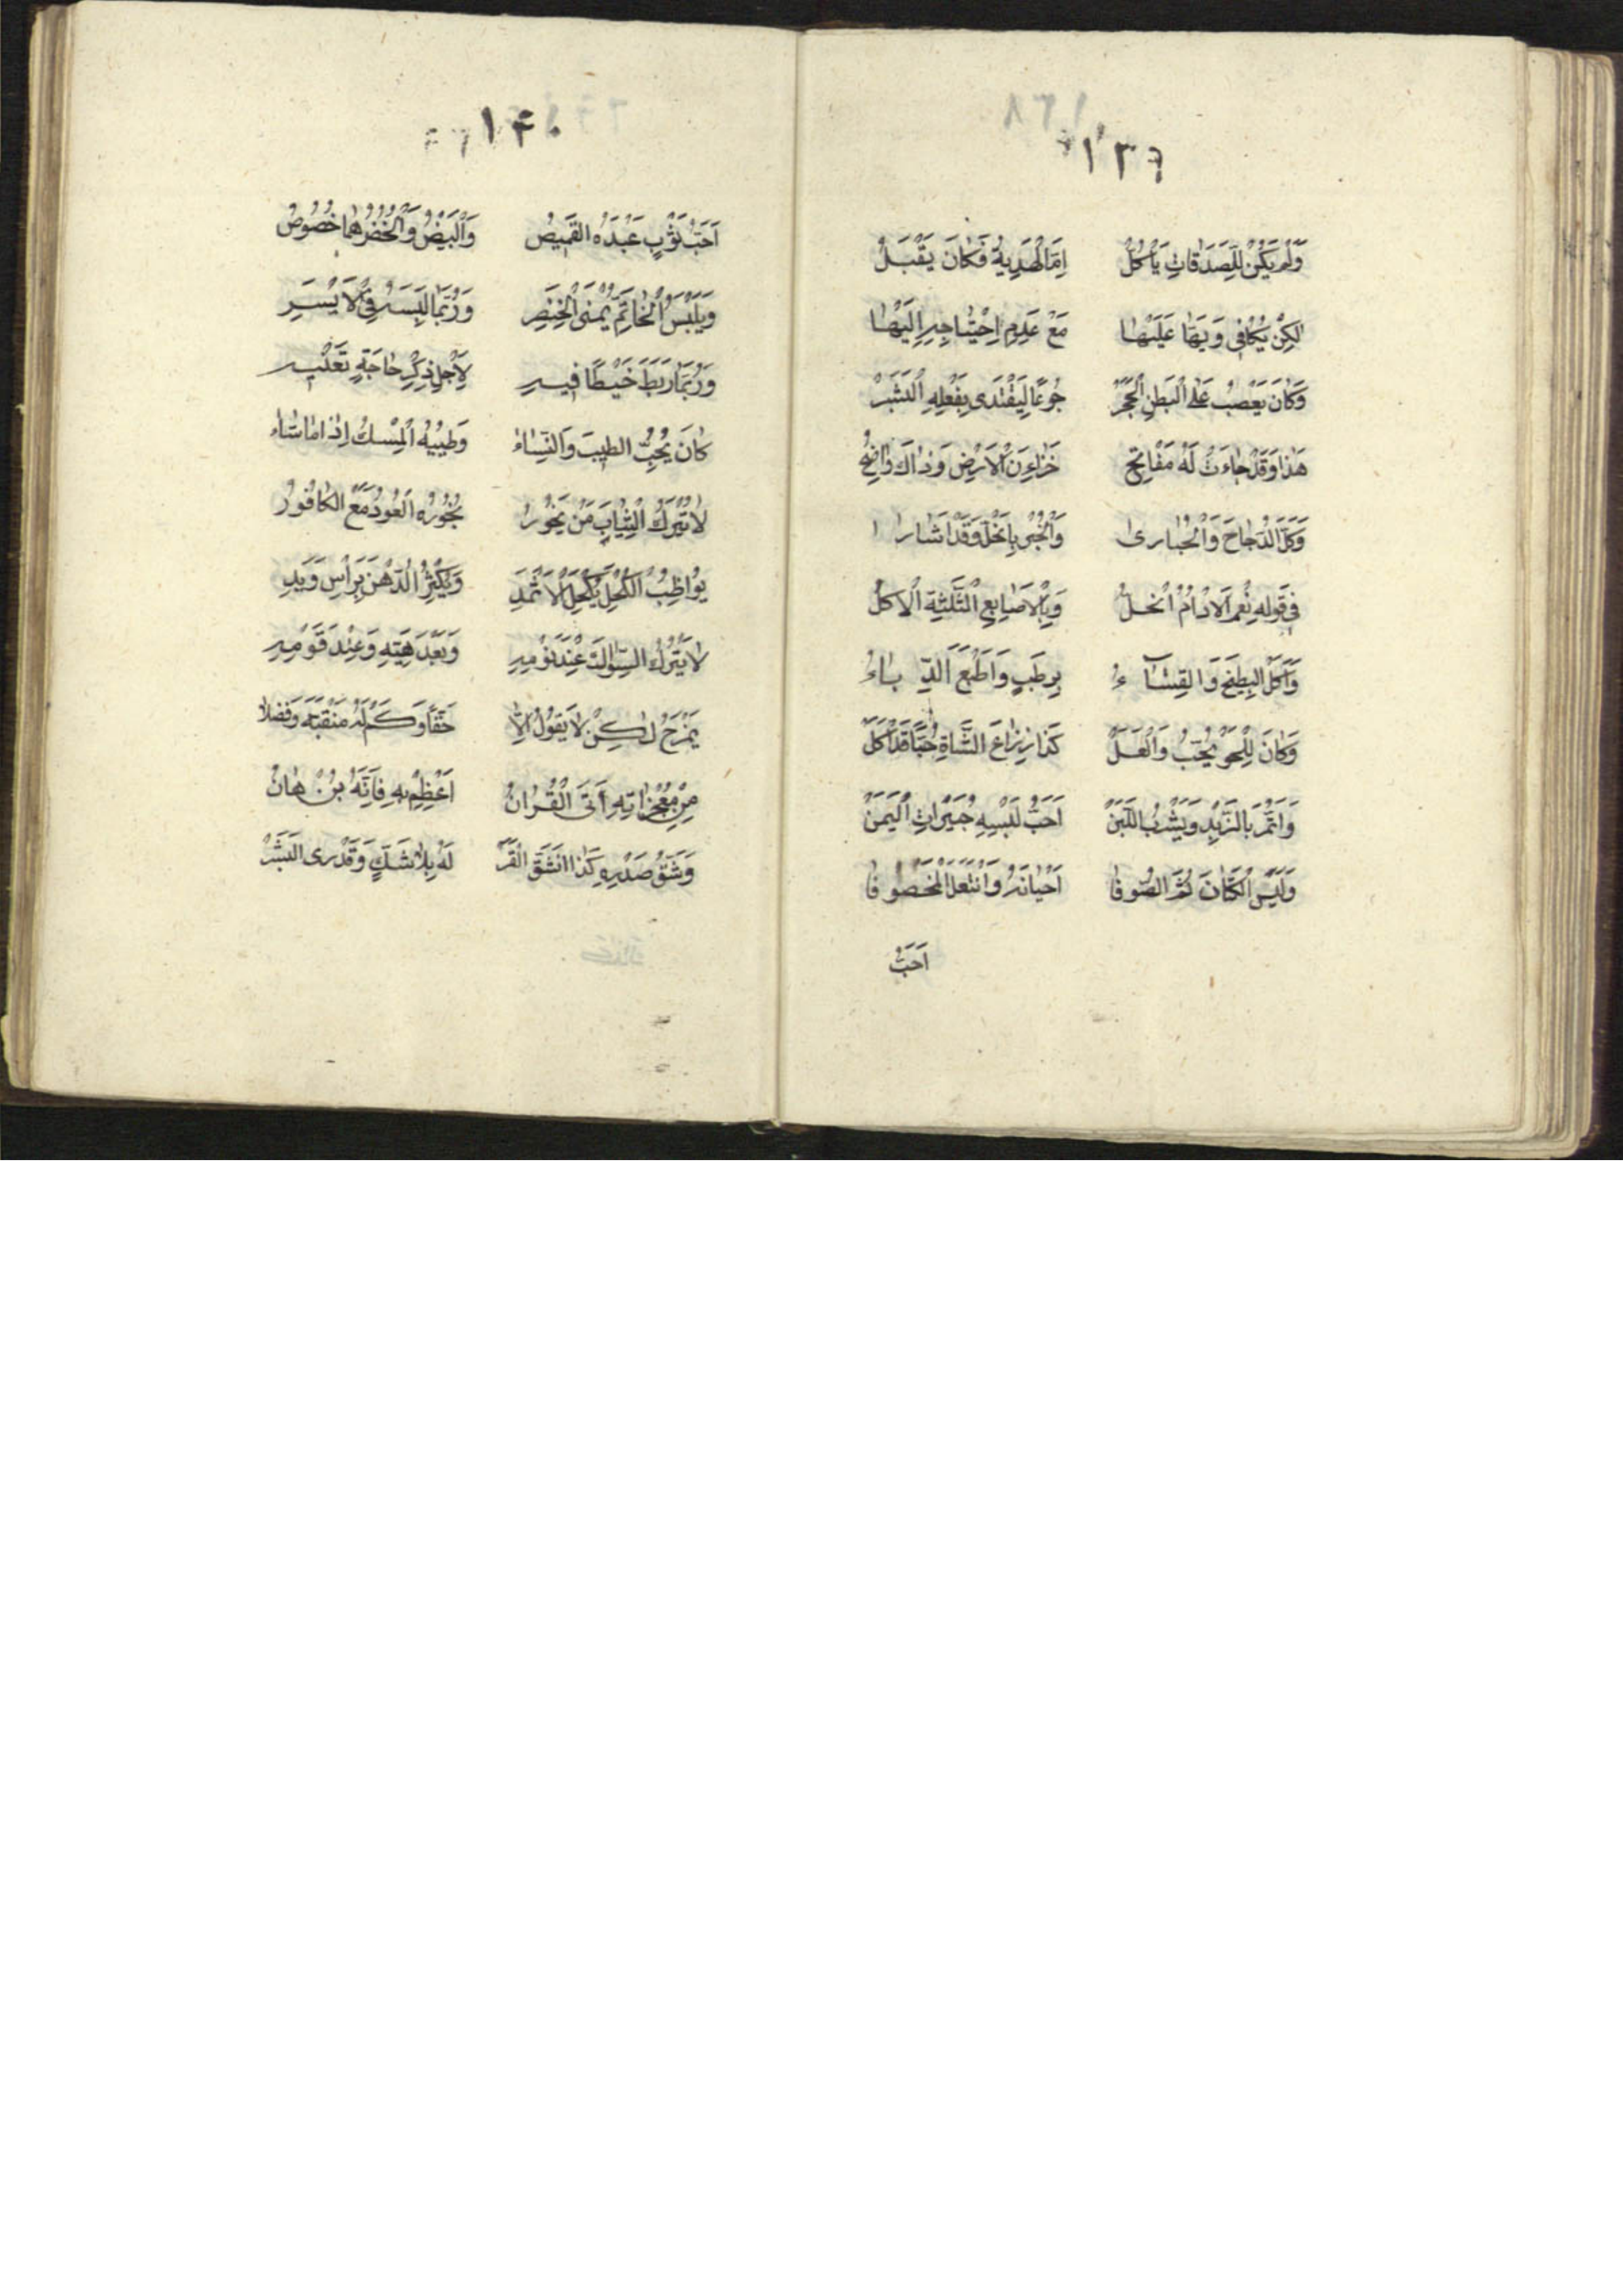 ١٣٦
وَلَمْ يَكُنْ لِلصَّدَقَاتِ يَأْكُلُ اِمَّا الْهَدِيَةُ فَكَانَ يَقْبَلُ
لٰكِنْ يُكَافِى وَيَهَا عَلَيْهَا مَعْ عَدِمِ اِحْتِيَاجِهِ اِلَيْهَا
وَكَانَ يَعْصِبْ عَلَى الْبَطْنِ الْحَجَرْ جُوعًا لِيَقْتَدَى بِفِعْلِهِ الْبَشَرْ
هٰذَا وَقَدْ جَاءَتْ لَهُ مَفَاتِحُ خَزَاءِنِ الْاَرْضِ وَذَاكَ وَاضِحُ
وَكَلَ الدَّجَاجَ وَالْحُبَارىٰ وَالْخُبْزَ بِالْخَلِّ وَقَدْ اَشَارَا
فِى قَوْلِهِ نِعْمَ الْاَدَامُ الْخَلُّ وَبِالْاَصَابِعِ الثَّلٰثَةِ الْاَكْلُ
وَاَكَلَ الْبِطِّيخَ وَالْقِثَّاءُ بِرُطَبٍ وَ الدِّبَاءُ
وَكَانَ لِلْحَلْوَ يُحِبُّ وَالْعَسَلْ كَذَا ذِرَاعَ الشَّاةِ حُبًّا قَدْ اَكَلْ
وَاتَّمْرَ بِالزَّبْدِ وَيَشْرَبُ اللَّبَنْ اَحَبُّ لُبْسِهِ حُبَيْرَاتِ الْيَمَنْ
وَلَبِسَ الْكَتَّانَ ثُمَّ الصُّوفَا اَحْيَانَهُ وَانْتَعَلَ الْمَخْصُوفَا
اَحَبُّ
١٤٠
اَحَبُّ ثَوْبٍ عِنْدَهُ الْقَمِيصُ وَالْبَيْضُ وَالْخُضْرُ هُمَا خُصُوصُ
وَيَلْبَسُ الْخَاتَمَ يُمْنَى الْخِنْصِرِ وَرُبَّمَا لَبِسَهُ فِى الْاَيْسَرِ
وَرُبَّمَا رَبَطَ خَيْطًا فِيهِ لِاَجْلِ ذِكْرِ حَاجَةٍ تَعْنِيهِ
كَانَ يُحِبُّ الطِّيبَ وَالنِّسَاءْ وَطِيبُهُ الْمِسْكُ اِذَا مَا شَاءْ
لَا تُتْرَكُ الثِّيَابَ مَنْ يَخُورُ بُخُورُهُ الْعُودُ مَعَ الْكَافُورُ
يُوَاظِبُ الْكُحْلَ بِكُحْلِ الْاَثْمَدِ وَيُكْثِرُ الدَّهْنَ بِرَأْسٍ وَيَدِ
لَا يَتْرُكُ السِّوَاكَ عِنْدَ نَوْمِهِ وَبَعْدَ هَيْتِهِ وَعِنْدَ قَوْمِهِ
يَمْزَحُ لٰكِنْ لَا يَقُولُ اِلَّا حَقًّا وَكَمْ لَهُ مَنْقَبَةً وَفَضْلَا
مِنْ مُعْجِزَاتِهِ اَتَى الْقُرْاٰنُ اَعْظِمْ بِهِ فَاِنَّهُ بُرْهَانُ
وَشَقُّ صَدْرِهِ كَذَا انْشَقَّ الْقَمَرْ لَهُ بِلَا شَكٍّ وَقَدْ رَى الْبَشَرْ